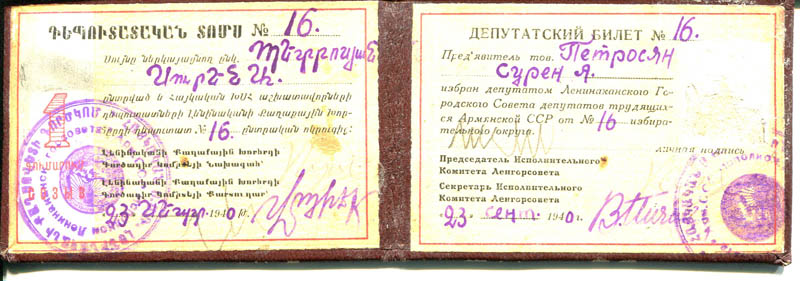 ԴԵՊՈՒՏԱՏԱԿԱՆ ՏՈՄՍ № 16.
Սույնը ներկայացնող ընկ. Պետրոսյան
Սուրեն Ա.
ընտրված և Հայկական ԽՍՀ աշխատավորների
դեպուտատների Լենինականի Քաղաքային Խոր-
հրդի դեպուտատ № 16. ընտրական օկրուգից:
Լենինականի Քաղաքային Խորհրդի
Գործադիր Կոմիտեի Նախագահ՝
Լենինականի Քաղաքային Խորհրդի
Գործադիր Կոմիտեի Քարտուղար՝
23 1940 թ.
ДЕПУТАТСКИЙ БИЛЕТ № 16.
Пред'явитель тов. Петросян
Сурен А.
избран депутатом Ленинаканского Го-
родского Совета депутатов трудящих-
ся Армянской ССР от № 16 избира-
тельного округа.
личная подпись
Председатель Исполнительного
Комитета Ленгорсовета
Секретарь Исполнительного
Комитета Ленгорсовета
23 сент. 1940 г.